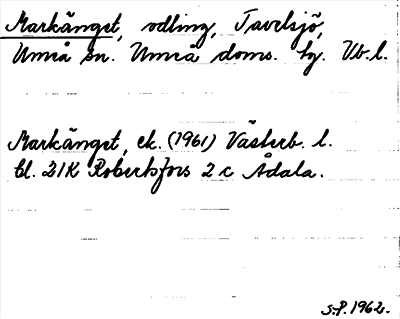 Markänget, odling, Tavelsjö,
Umeå sn. Umeå doms. hg. Vb.l.
Markänget, ek. (1961) Västerb. l.
bl. 21K Robertsfors 2 c Ådala.
S.P. 1962.